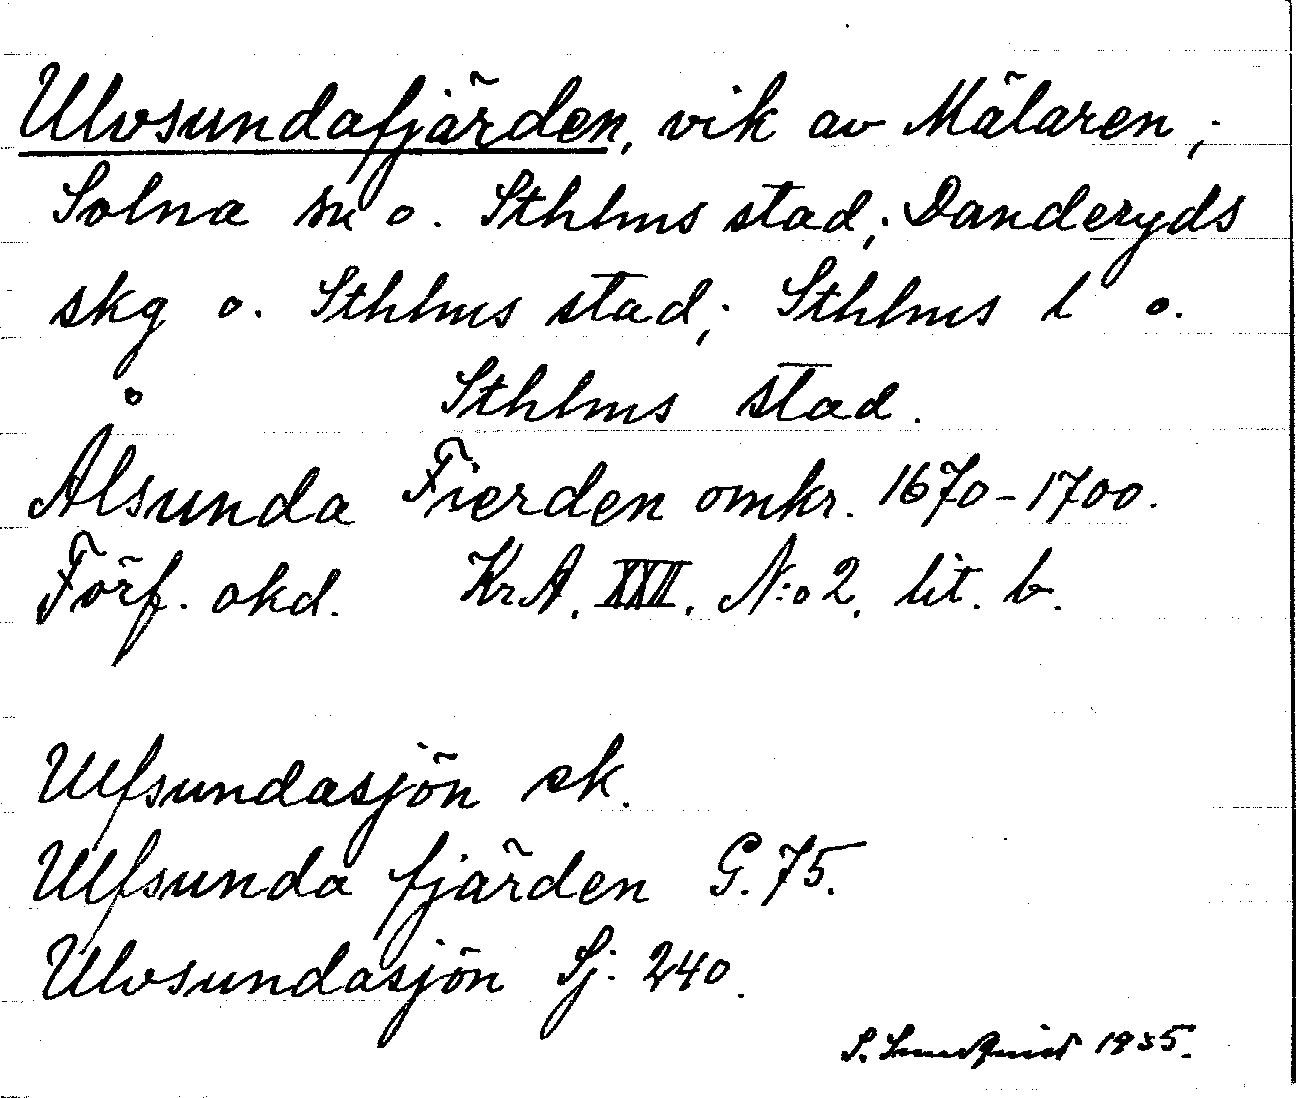 Ulvsundafjärden, vik av Mälaren;
Solna sn o. Sthlms stad; Danderyds
skg o. Sthlms stad; Sthlms l o.
Sthlms stad.
Ålsunda Fierden omkr. 1670-1700.
Förf. okd. KrA. XXII. N:o 2. lit. b.
Ulfsundasjön ek.
Ulfsunda fjärden G. 75.
Ulvsundasjön Sj. 240.
S. 1935.